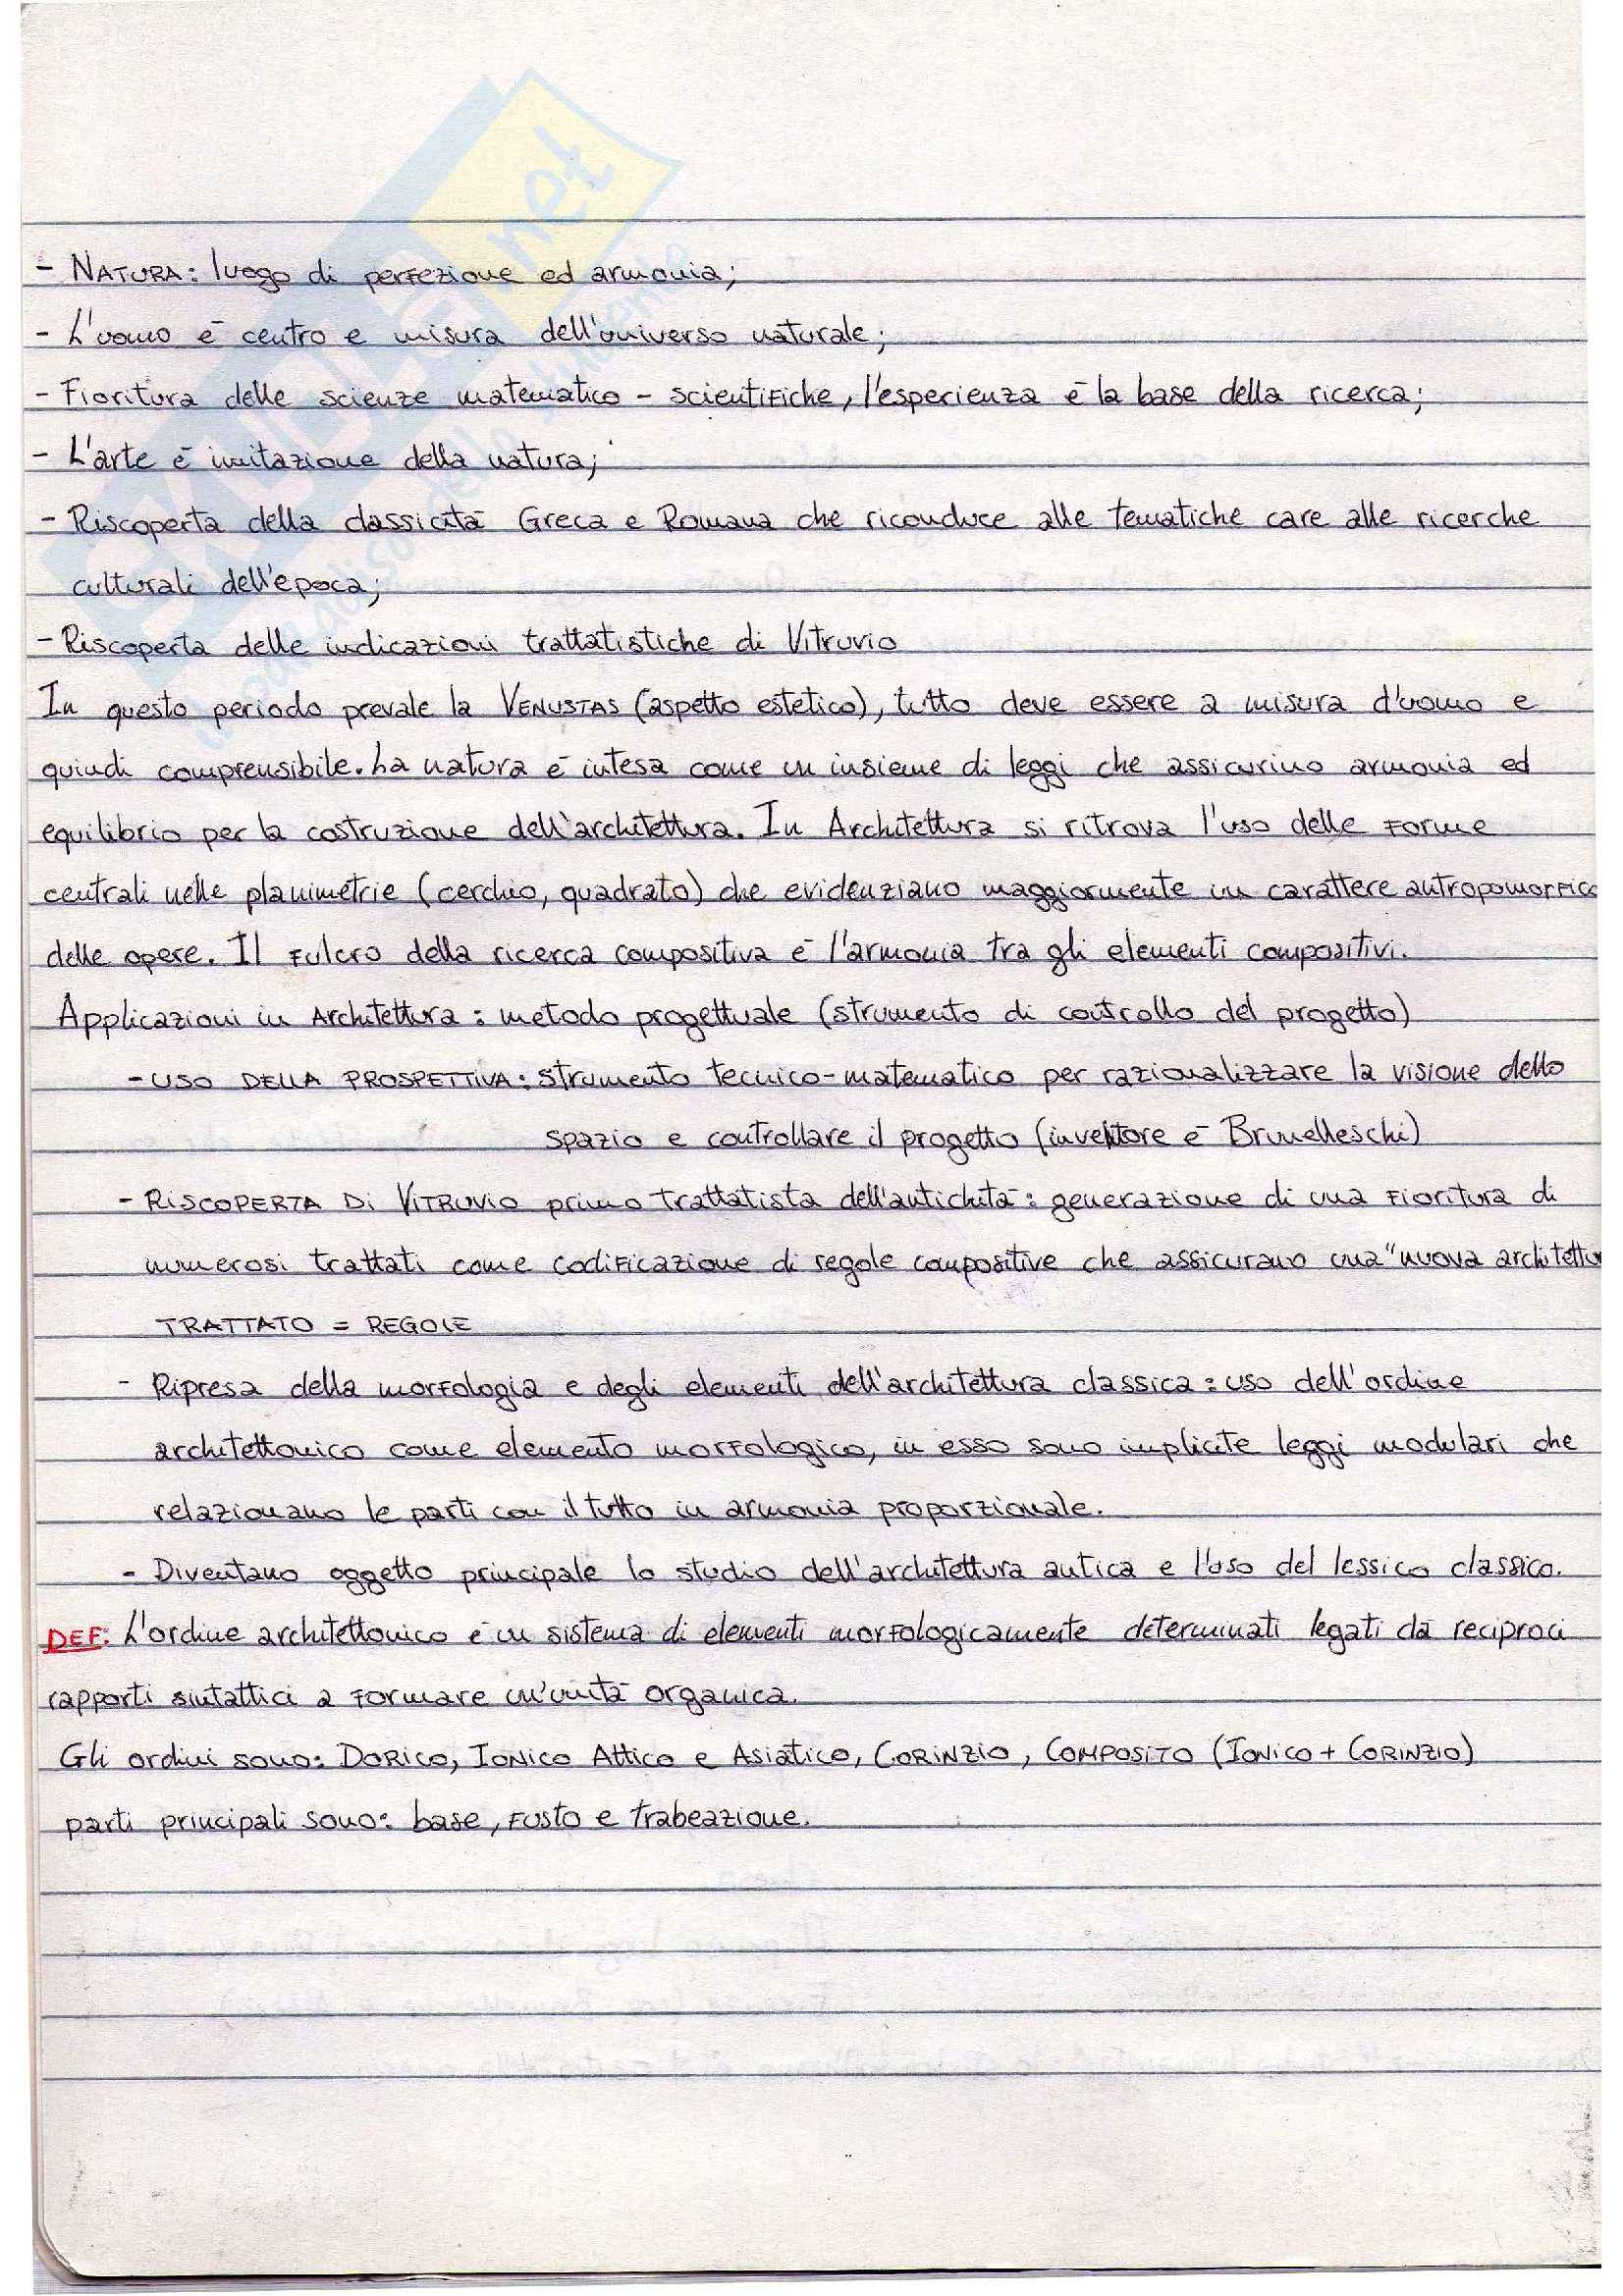 - NATURA: luogo di perfezione ed armonia;
- L'uomo è centro e misura dell'universo naturale;
- Fioritura delle scienze matematico - scientifiche, l'esperienza è la base della ricerca;
- L'arte è imitazione della natura;
- Riscoperta della classicità Greca e Romana che riconduce alle tematiche care alle ricerche
culturali dell'epoca;
- Riscoperta delle indicazioni trattatistiche di Vitruvio
In questo periodo prevale la VENUSTAS (aspetto estetico), tutto deve essere a misura d'uomo e
quindi comprensibile. La natura è intesa come un insieme di leggi che assicurino armonia ed
equilibrio per la costruzione dell'architettura. In Architettura si ritrova l'uso delle forme
centrali nelle planimetrie (cerchio, quadrato) che evidenziano maggiormente un carattere antropomorfico
delle opere. Il fulcro della ricerca compositiva è l'armonia tra gli elementi compositivi.
Applicazioni in Architettura: metodo progettuale (strumento di controllo del progetto)
- USO DELLA PROSPETTIVA: strumento tecnico-matematico per razionalizzare la visione dello
spazio e controllare il progetto (inventore è Brunelleschi)
- RISCOPERTA DI VITRUVIO primo trattatista dell'antichità: generazione di una fioritura di
numerosi trattati come codificazione di regole compositive che assicurano una "nuova architettu
TRATTATO = REGOLE
- Ripresa della morfologia e degli elementi dell'architettura classica: uso dell'ordine
architettonico come elemento morfologico, in esso sono implicite leggi modulari che
relazionano le parti con il tutto in armonia proporzionale.
- Diventano oggetto principale lo studio dell'architettura antica e l'uso del lessico classico.
DEF: L'ordine architettonico è un sistema di elementi morfologicamente determinati legati da reciproci
rapporti sintattici a formare un'unità organica.
Gli ordini sono: DORICO, IONICO ATTICO e ASIATICO, CORINZIO, COMPOSITO (IONICO + CORINZIO)
parti principali sono: base, fusto e trabeazione.
net